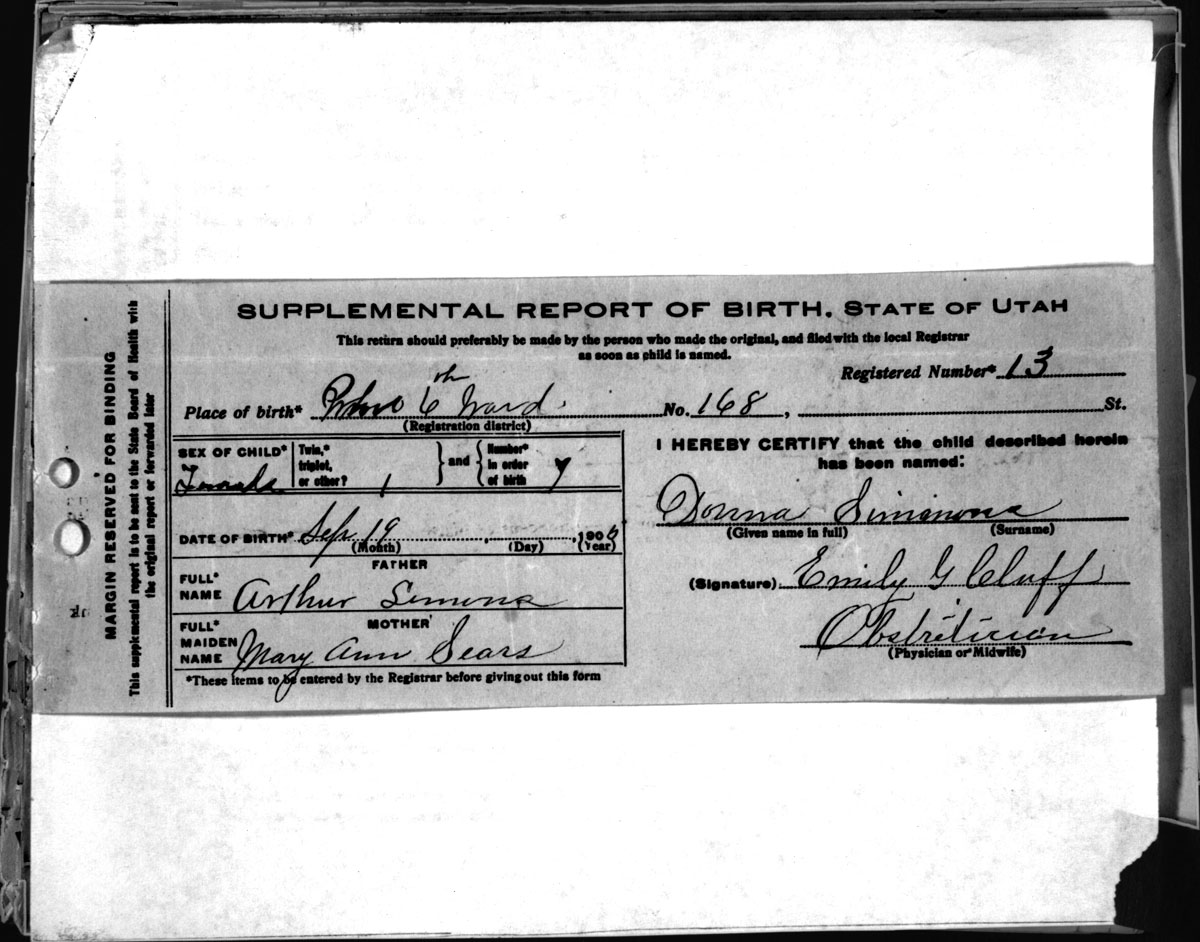 SUPPLEMENTAL REPORT OF BIRTH, STATE OF UTAH
This return should preferably be made by the person who made the original, and filed with the local Registrar
as soon as child is named.
Registered Number* 13
Place of birth* 6th Ward No. 168, St.
(Registration district)
SEX OF CHILD* Female
Twin,*
triplet,
or other? 1
and
Number*
in order
of birth 7
DATE OF BIRTH* Sep. 19, 1906
(Month) (Day) (Year)
FATHER
FULL*
NAME Arthur Simons
MOTHER
FULL*
MAIDEN
NAME Mary Ann Sears
*These items to be entered by the Registrar before giving out this form
I HEREBY CERTIFY that the child described herein
has been named:
Donna Simmons
(Given name in full) (Surname)
(Signature) Emily G Cluff
Obstritician
(Physician or Midwife)
MARGIN RESERVED FOR BINDING
This supplemental report is to be sent to the State Board of Health with
the original report or forwarded later